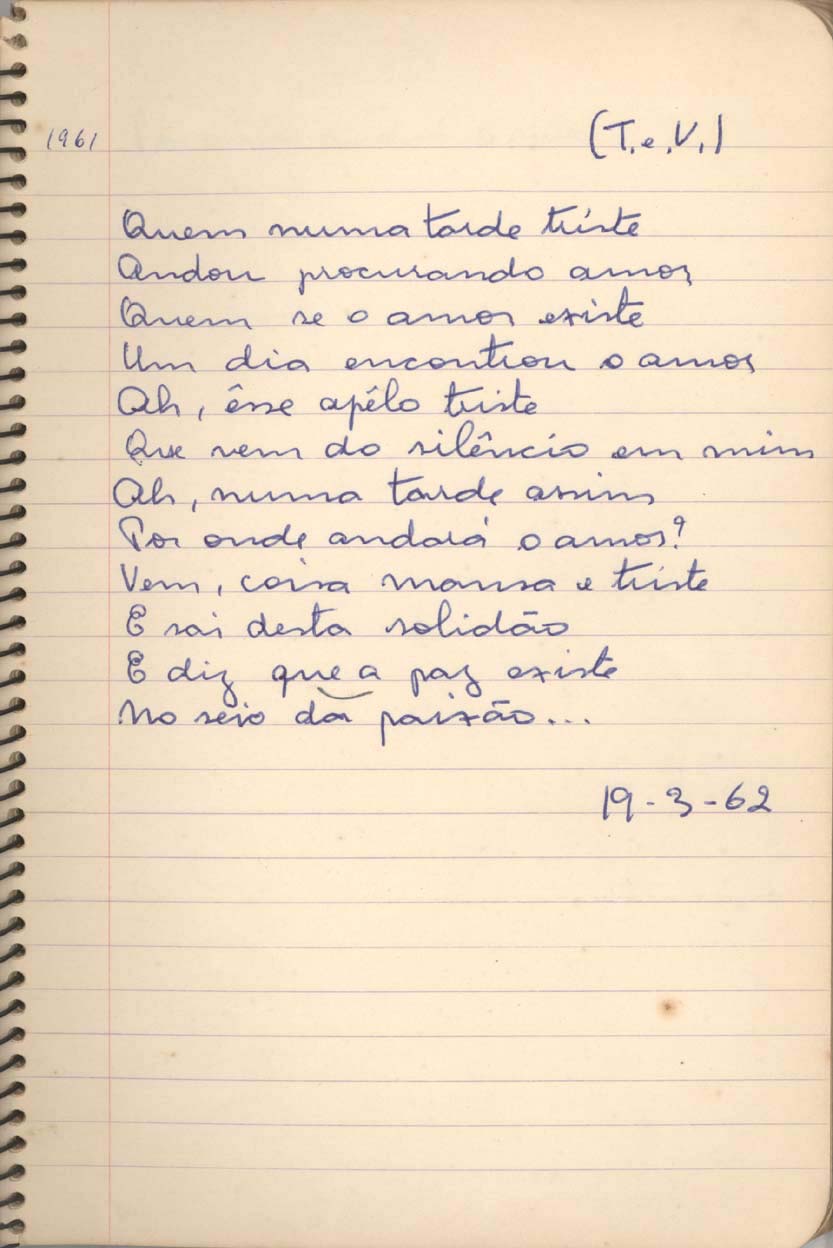 1961
(T. e. V.)
Quem numa tarde triste
Andou procurando amor
Quem se o amor existe
Um dia encontrou o amor
Ah, êsse apêlo triste
Que vem do silêncio em mim
Ah, numa tarde assim
Por onde andará o amor?
Vem, coisa mansa e triste
E sai desta solidão
E diz que a paz existe
No seio da paixão...
19-3-62